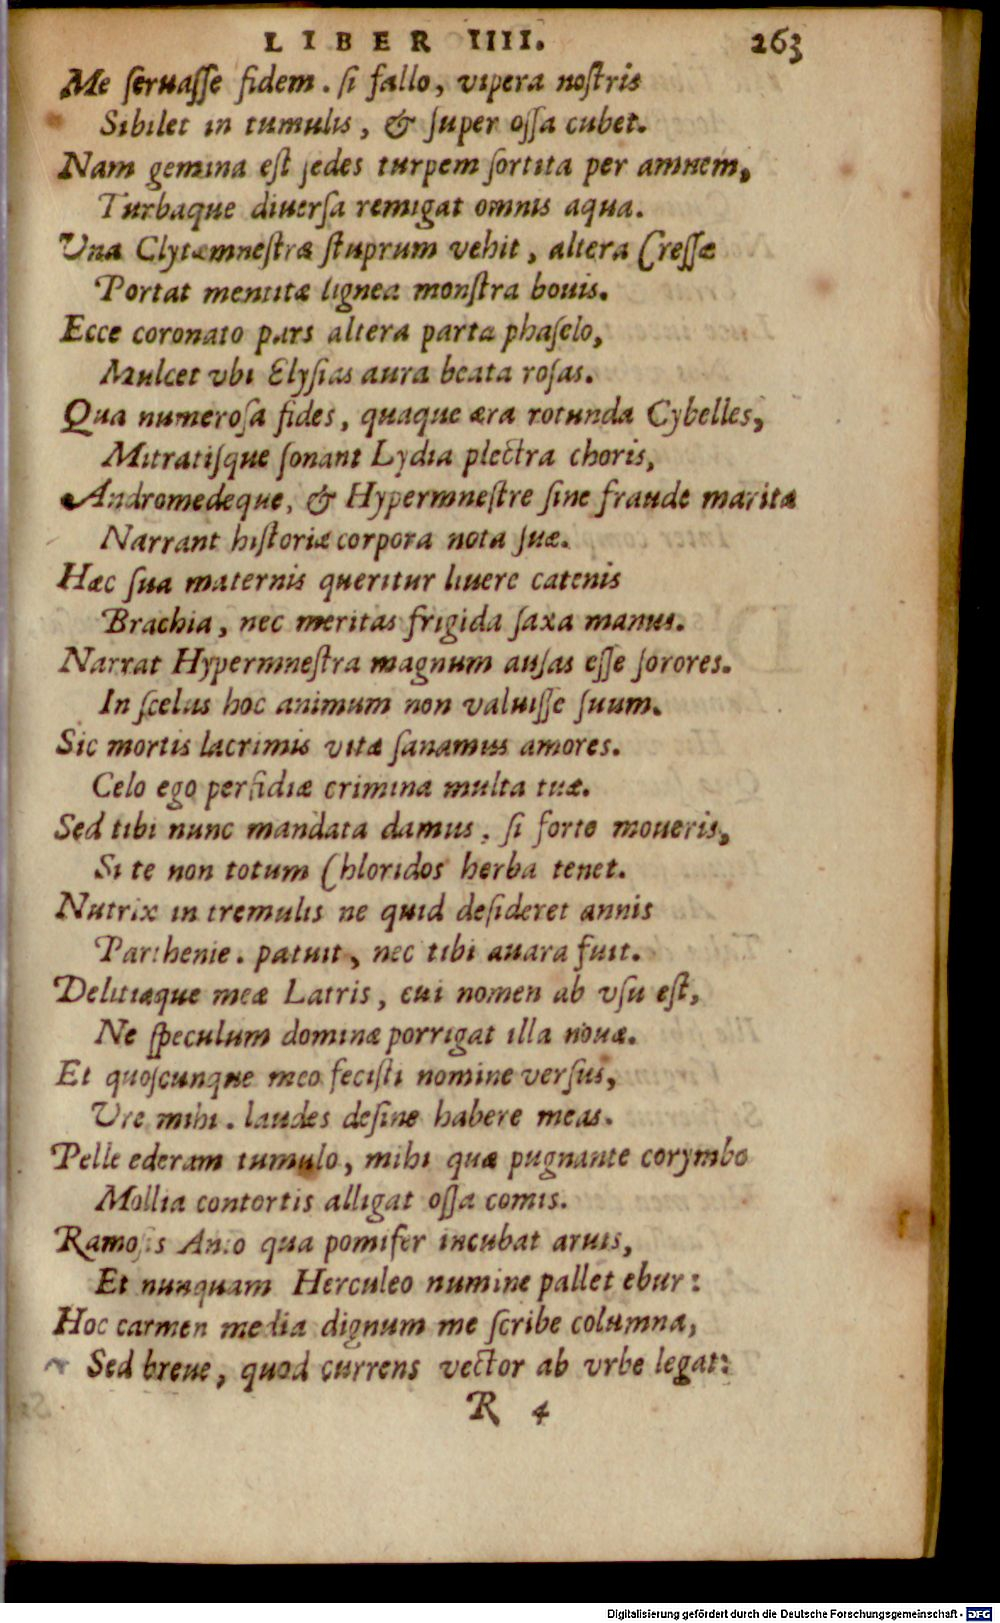 LIBER IIII. 263
Me seruasse fidem. si fallo, vipera nostris
Sibilet in tumulis, & super ossa cubet.
Nam gemina est sedes turpem sortita per amnem,
Turbaque diuersa remigat omnis aqua.
Vna Clytæmnestræ stuprum vehit, altera Cressæ
Portat mentitæ lignea monstra bouis.
Ecce coronato pars altera parta phaselo,
Mulcet vbi Elysias aura beata rosas.
Qua numerosa fides, quaque æra rotunda Cybelles,
Mitratisque sonant Lydia plectra choris,
Andromedeque, & Hypermnestre sine fraude maritæ
Narrant historiæ corpora nota suæ.
Hæc sua maternis queritur liuere catenis
Brachia, nec meritas frigida saxa manus.
Narrat Hypermnestra magnum ausas esse sorores.
In scelus hoc animum non valuisse suum.
Sic mortis lacrimis vitæ sanamus amores.
Celo ego perfidiæ crimina multa tuæ.
Sed tibi nunc mandata damus, si forte moueris,
Si te non totum Chloridos herba tenet.
Nutrix in tremulis ne quid desideret annis
Parthenie. patuit, nec tibi auara fuit.
Delitiæque meæ Latris, cui nomen ab vsu est,
Ne speculum dominæ porrigat illa nouæ.
Et quoscunque meo fecisti nomine versus,
Vre mihi. laudes desine habere meas.
Pelle ederam tumulo, mihi quæ pugnante corymbo
Mollia contortis alligat ossa comis.
Ramosis Anio qua pomifer incubat aruis,
Et nunquam Herculeo numine pallet ebur:
Hoc carmen media dignum me scribe columna,
Sed breue, quod currens vector ab vrbe legat:
R 4
Digitalisierung gefördert durch die Deutsche Forschungsgemeinschaft - DFG